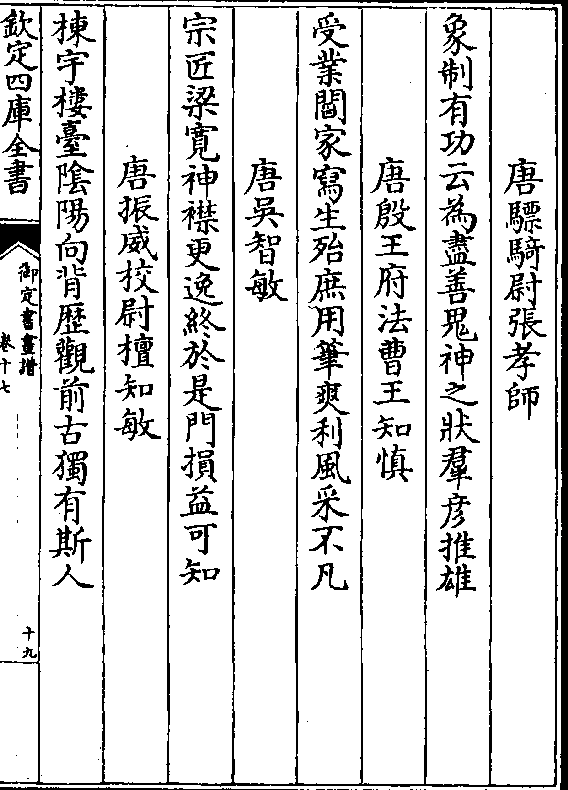 唐驃騎尉張孝師
象制有功云為盡善鬼神之狀羣彦推雄
唐殷王府法曹王知慎
受業閻家寫生殆庶用筆爽利風采不凡
唐吳智敏
宗匠梁寛神襟更逸終於是門損益可知
唐振威校尉檀知敏
棟宇樓臺隂陽向背歴觀前古獨有斯人
欽定四庫全書
御定書畫譜
卷十七
十九